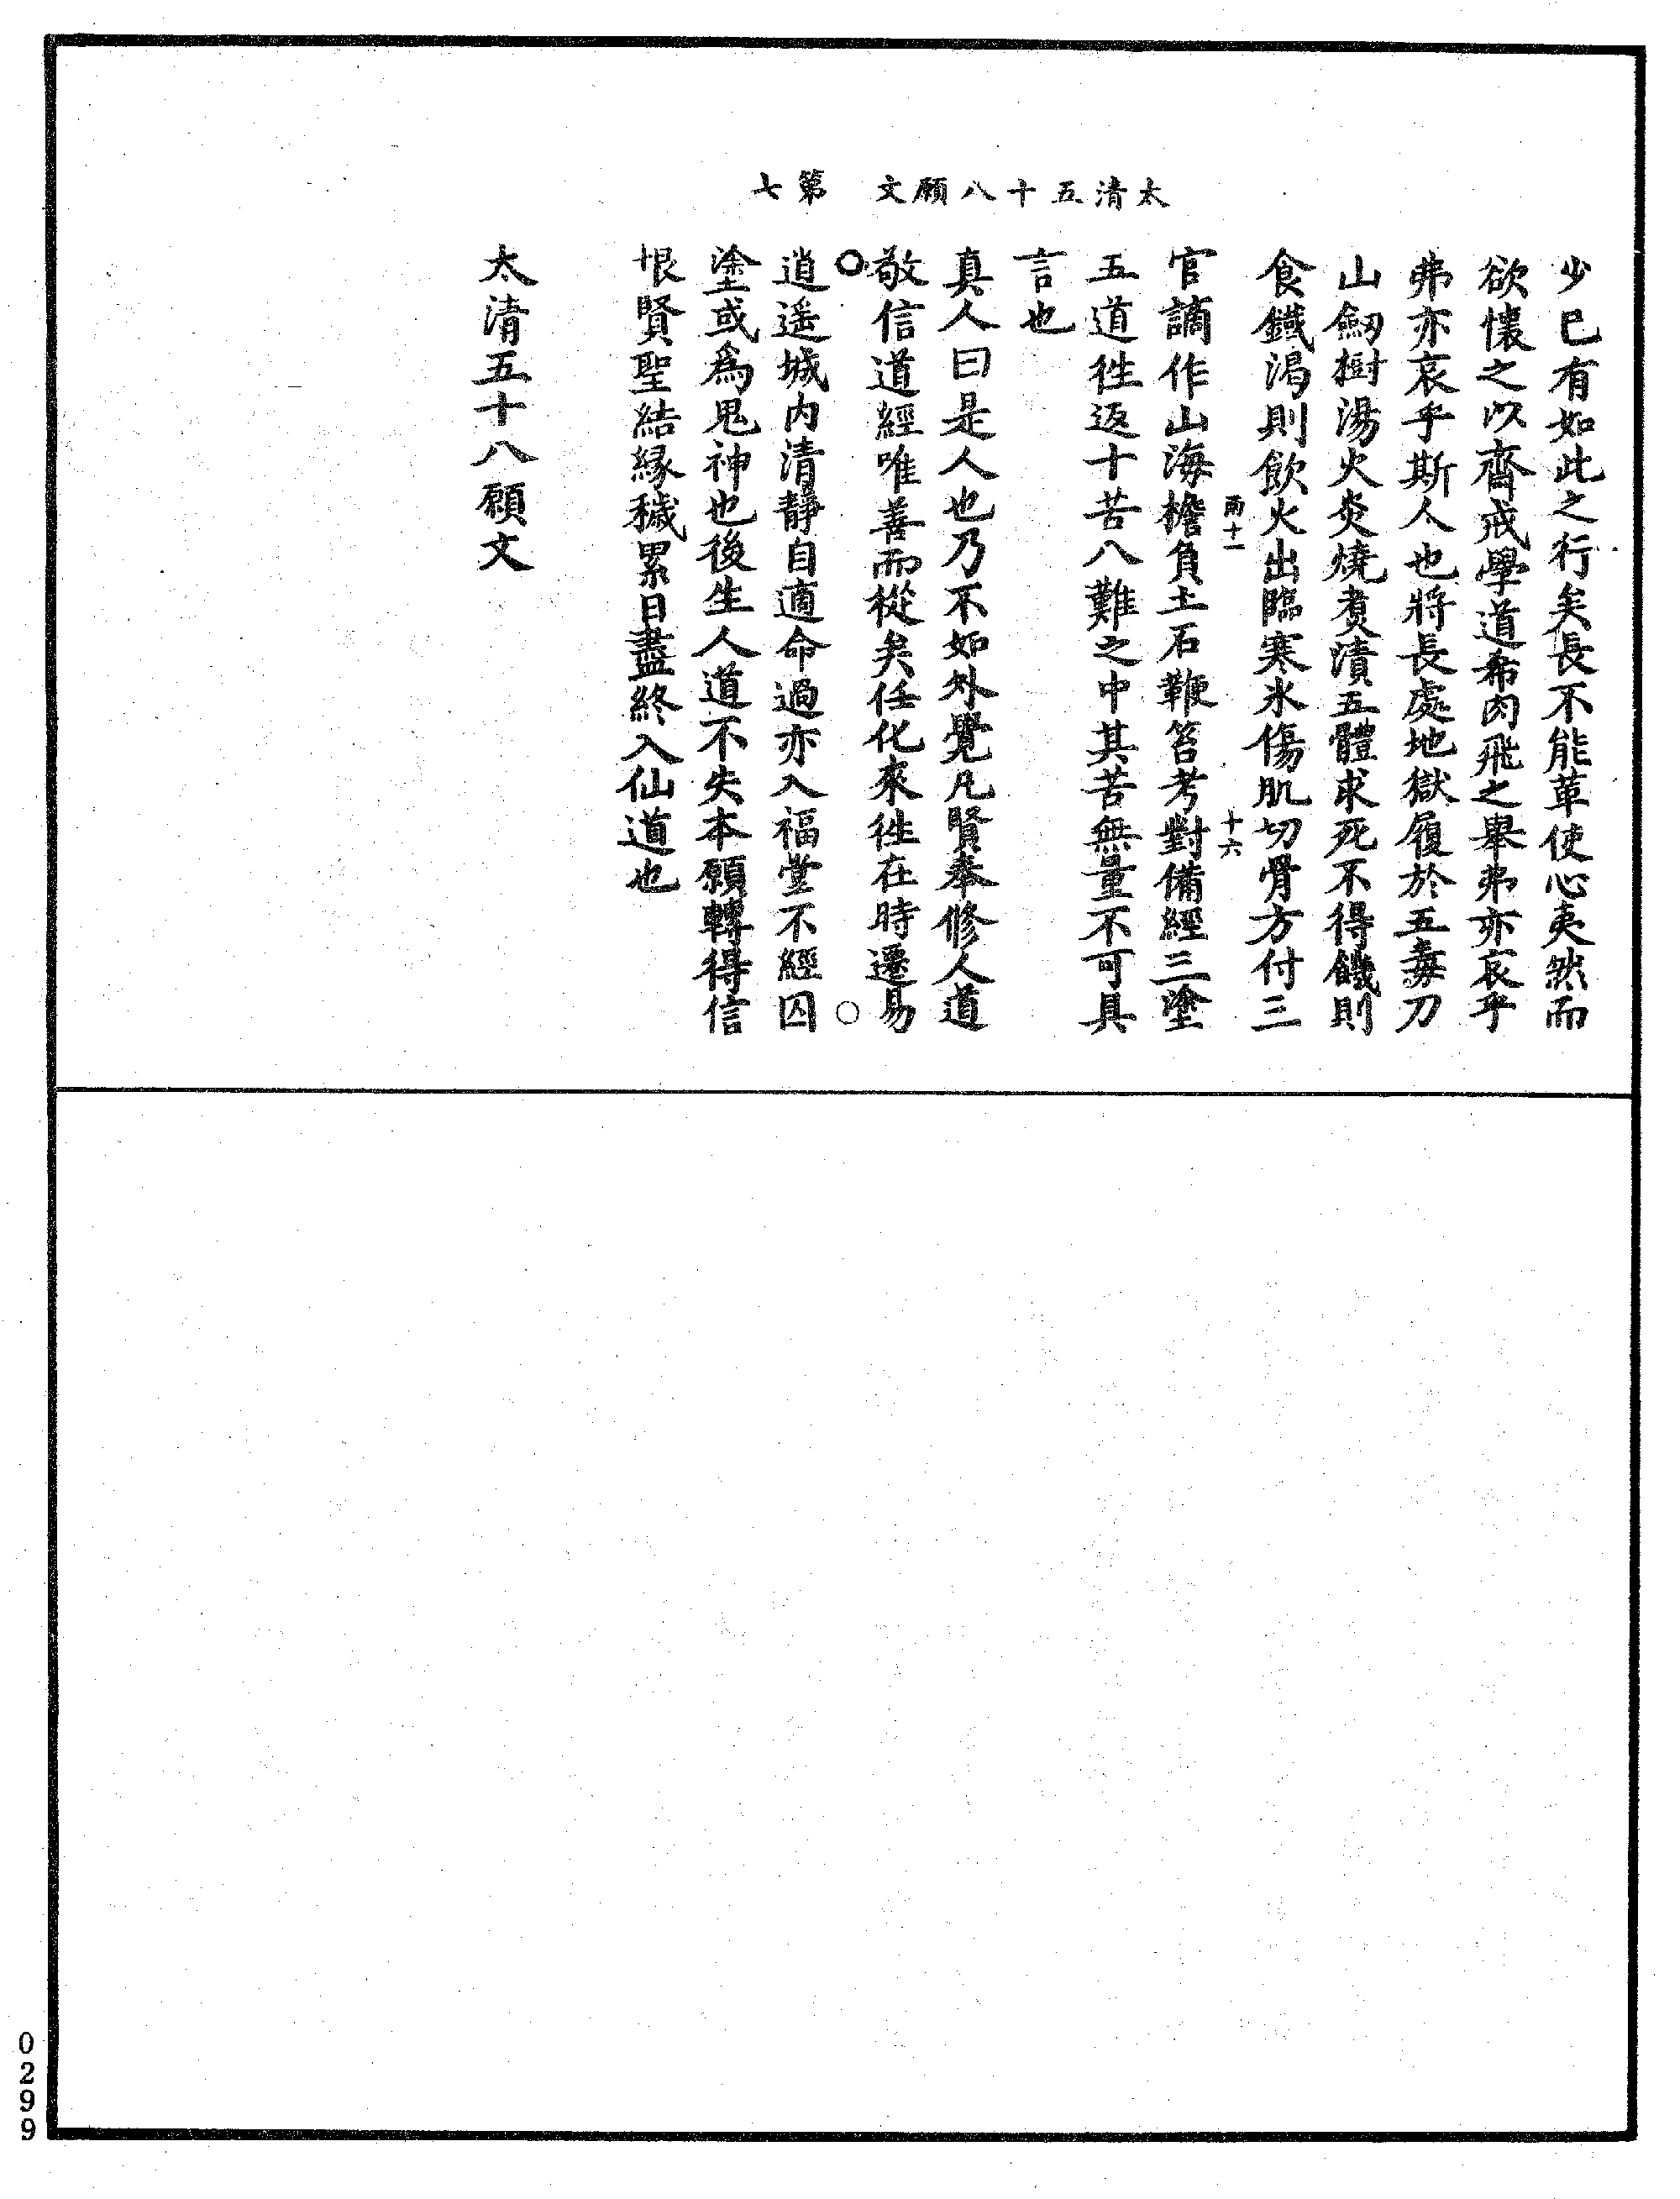 太清五十八願文　第七
少已有如此之行矣長不能革使心夷然而
欲懷之以齊戒學道希肉飛之舉弗亦哀乎
弗亦哀乎斯人也將長處地獄履於五毒刀
山劒樹湯火炎燒煑漬五體求死不得饑則
食鐵渴則飲火出臨寒冰傷肌切骨方付三
雨十一　十六
官謫作山海檐負土石鞭笞考對備經三塗
五道徃返十苦八難之中其苦無量不可具
言也
真人曰是人也乃不如外覺凡賢奉修人道
敬信道經唯善而從矣任化來徃在時遷易
逍遥城内清靜自適命過亦入福堂不經囚
塗或爲鬼神也後生人道不失本願轉得信
恨賢聖結緣穢累日盡終入仙道也
太清五十八願文
0299